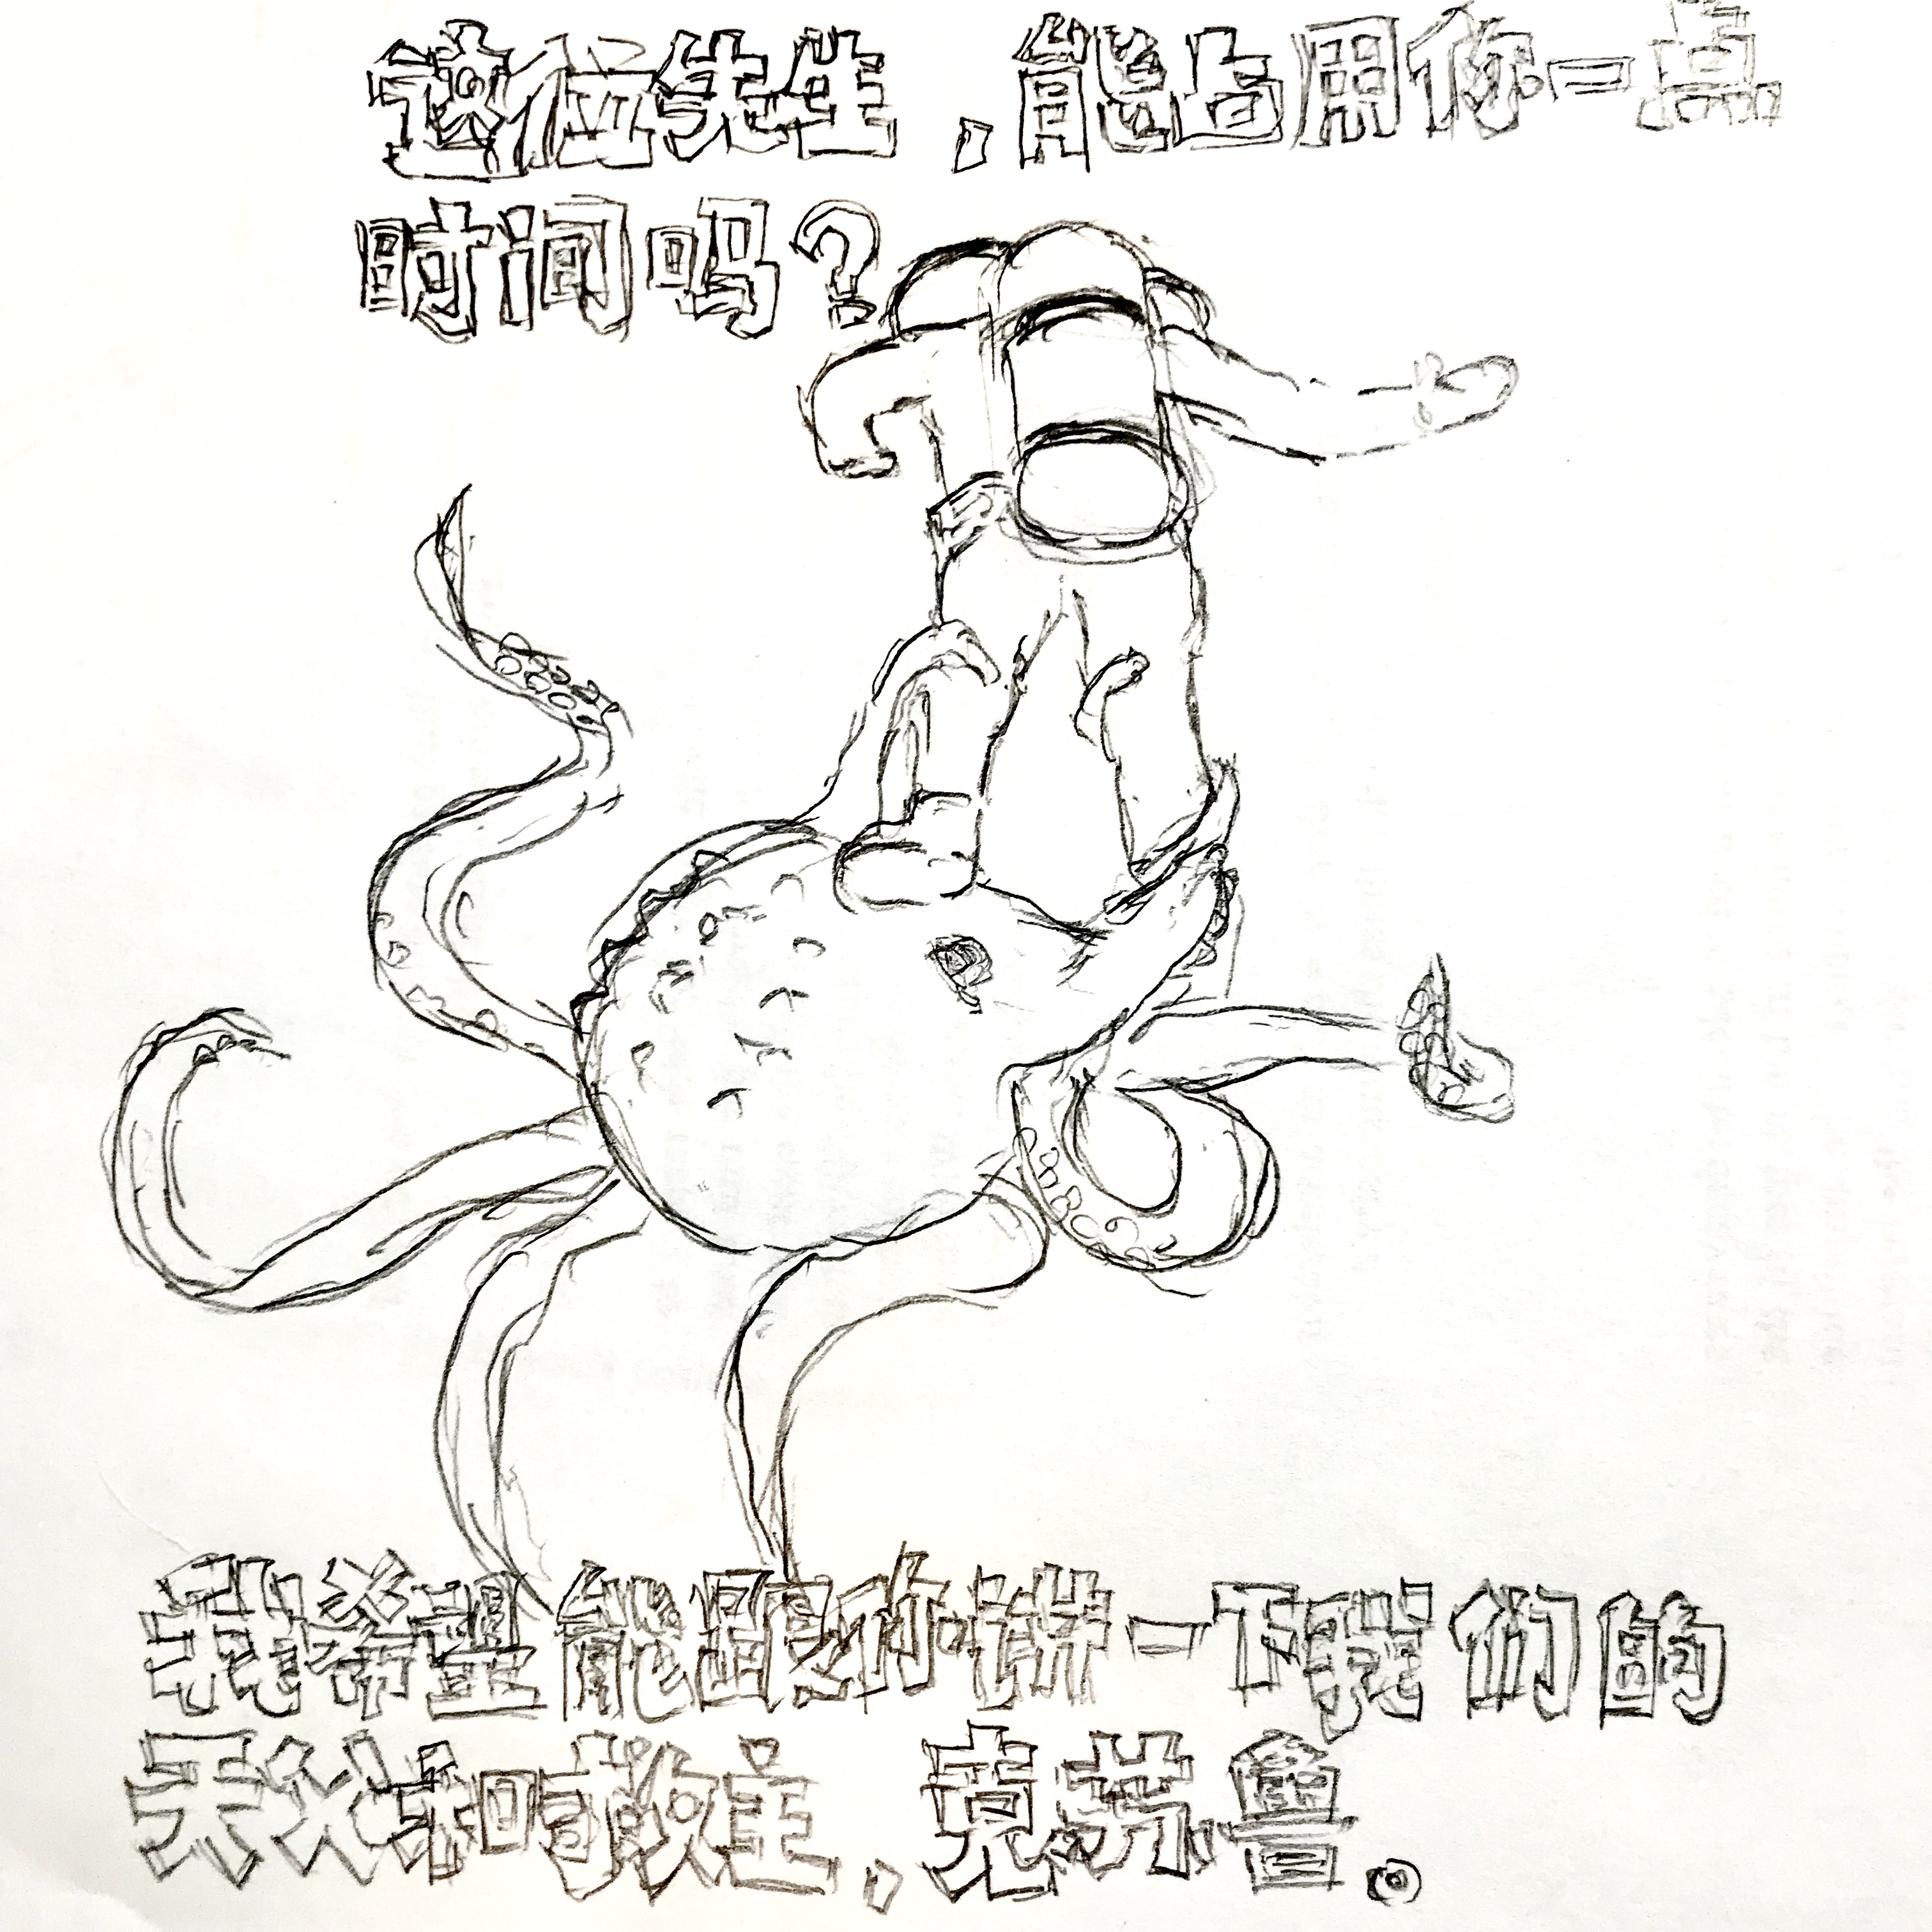 这位先生，能占用你一点
时间吗？
我希望能跟你讲一下我们的
天父和救主，克苏鲁。